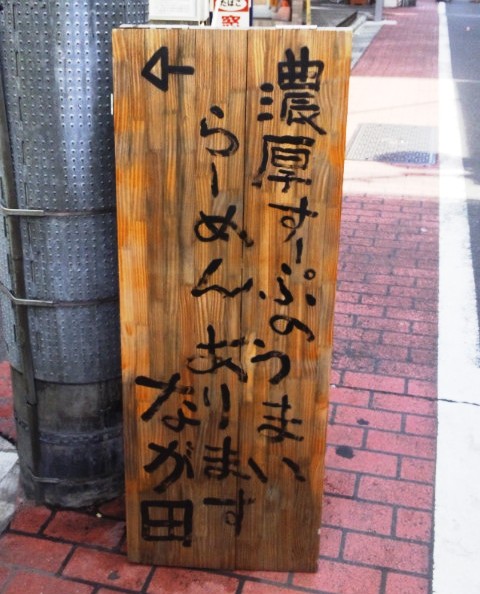 濃厚すーぷのうまい
らーめんあります
なが田
←
たばこ